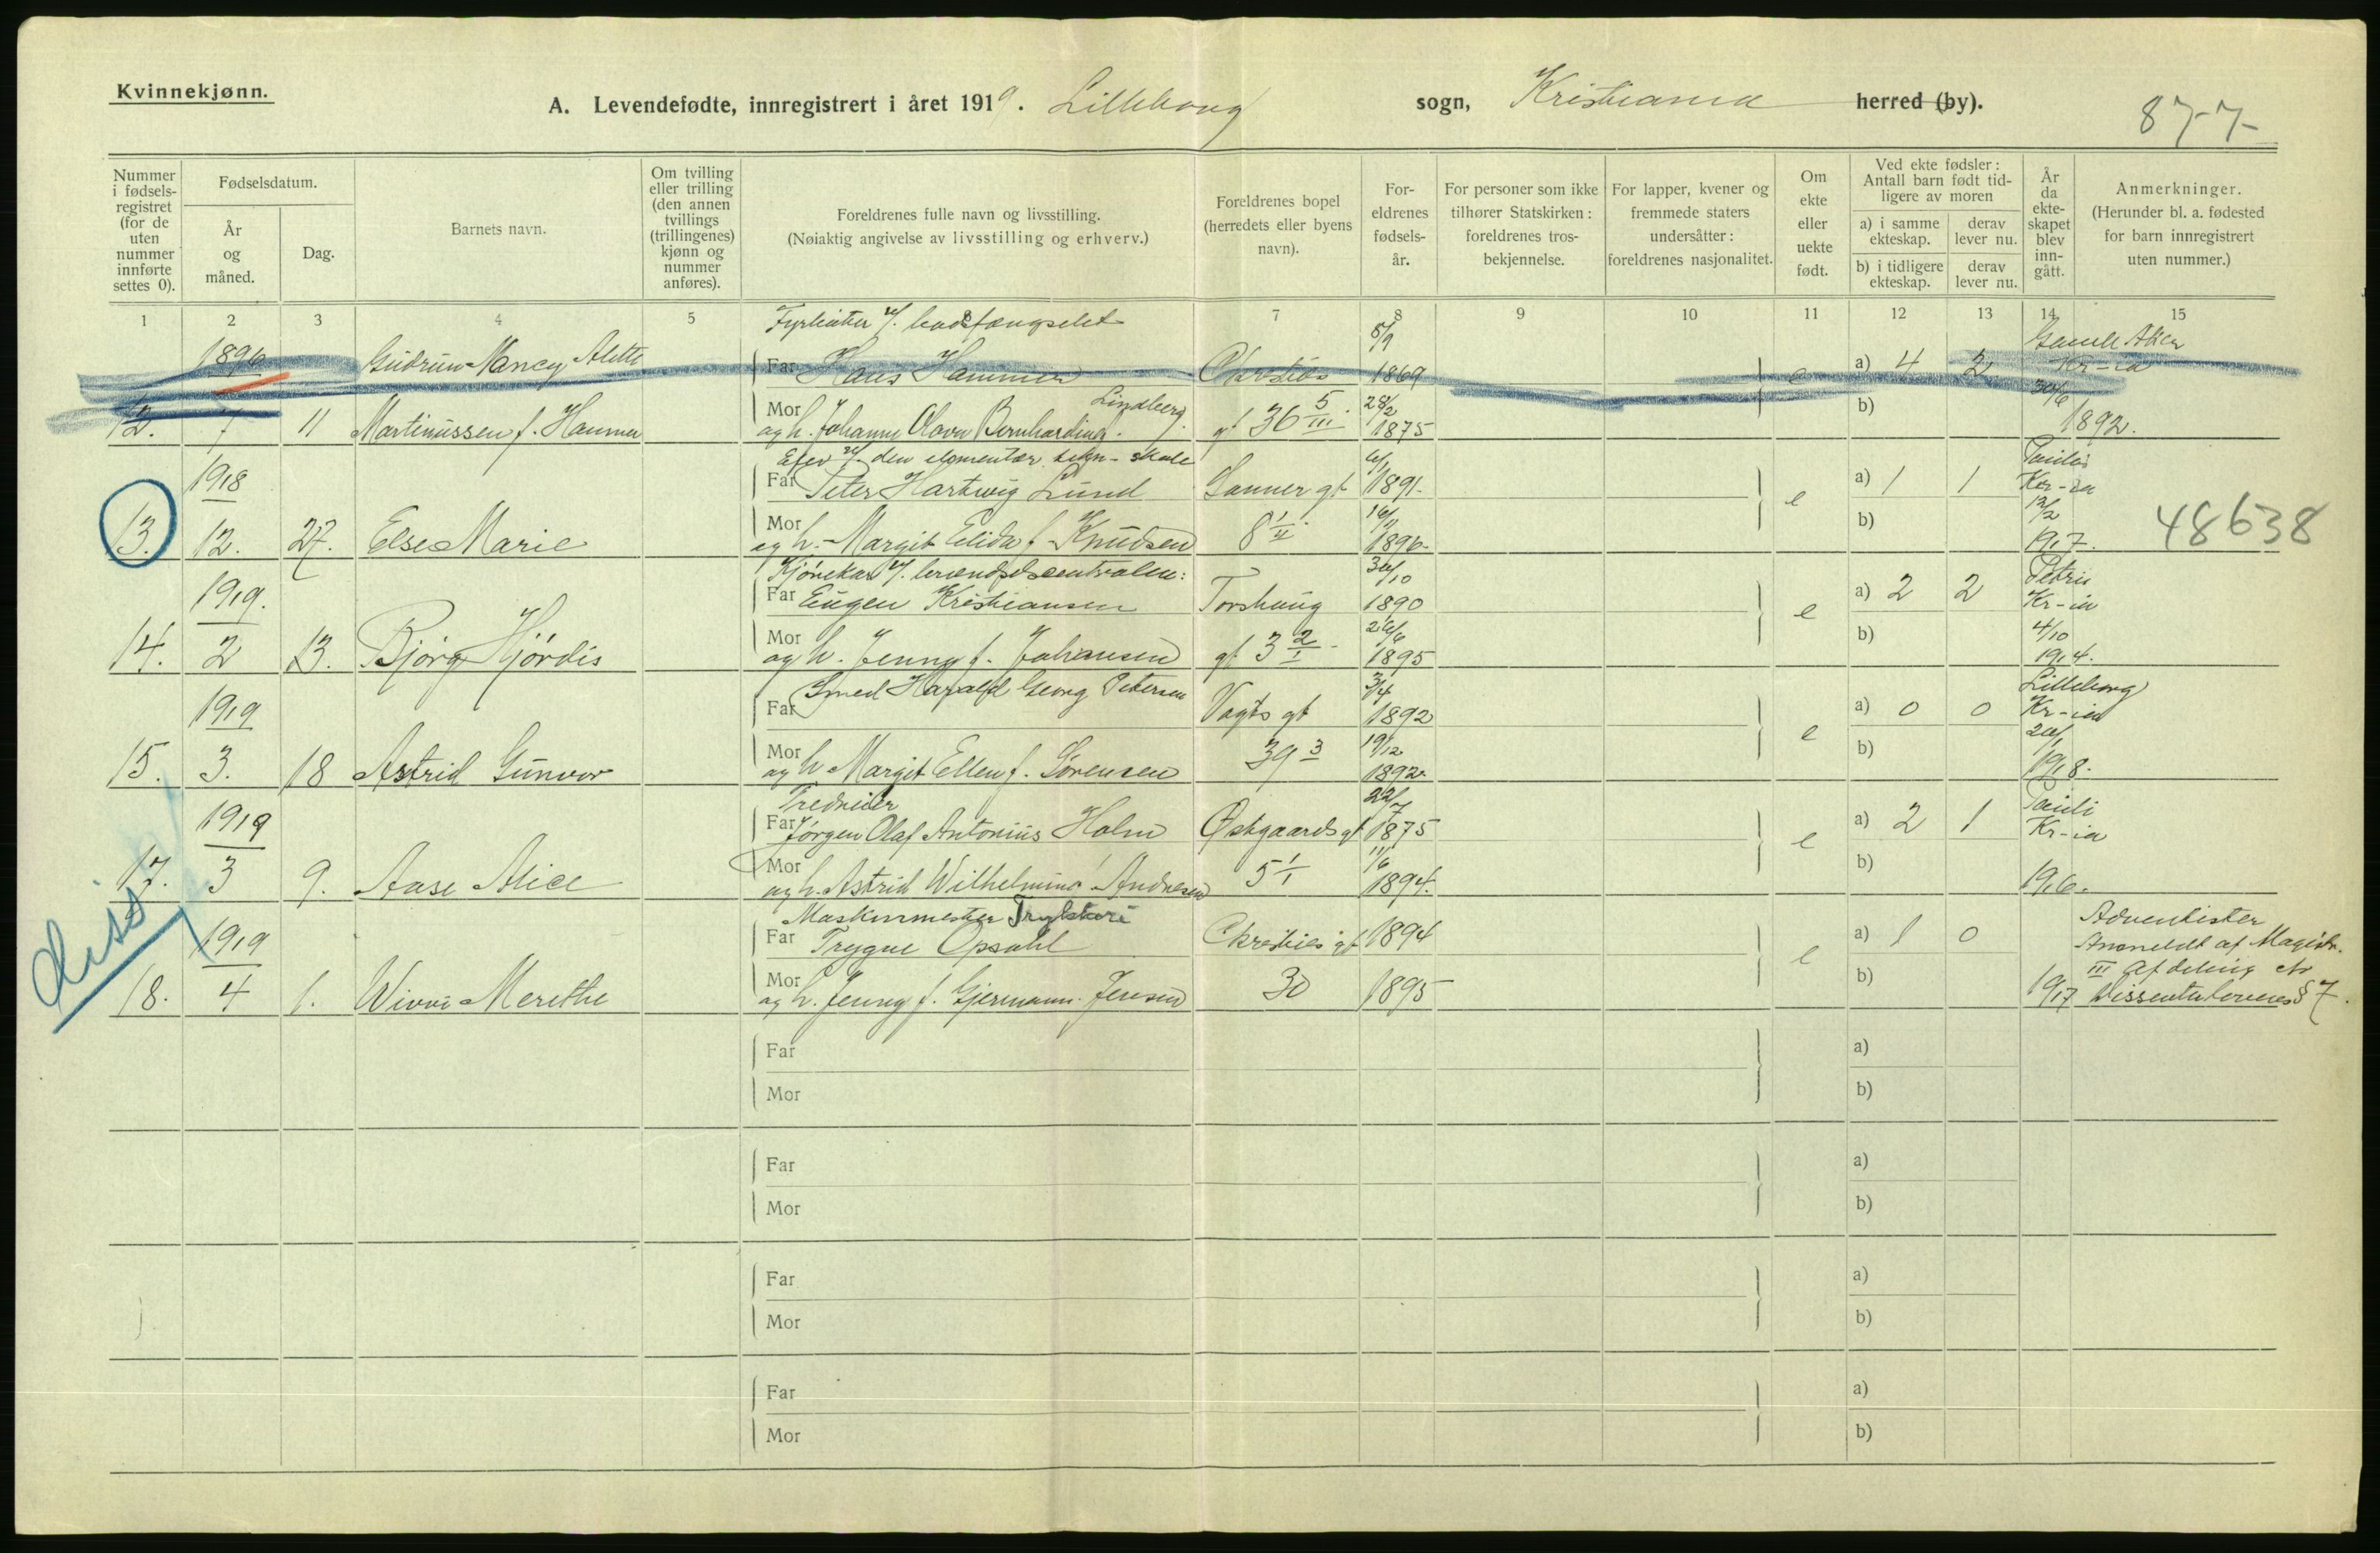 Kvinnekjønn.
A. Levendefødte, innregistrert i året 1919. Lilleborg sogn, Kristiania herred (by).
877
Nummer i fødsels-registret (for de uten nummer innførte settes 0).
Fødselsdatum.
År og måned.
Dag.
Barnets navn.
Om tvilling eller trilling (den annen tvillings (trillingenes) kjønn og nummer anføres).
Foreldrenes fulle navn og livsstilling.
(Nøiaktig angivelse av livsstilling og erhverv.)
Foreldrenes bopel (herredets eller byens navn).
For-eldrenes fødsels-år.
For personer som ikke tilhører Statskirken: foreldrenes tros-bekjennelse.
For lapper, kvener og fremmede staters undersåtter: foreldrenes nasjonalitet.
Om ekte eller uekte født.
Ved ekte fødsler: Antall barn født tid-ligere av moren
a) i samme ekteskap.
derav lever nu.
b) i tidligere ekteskap.
derav lever nu.
År da ekte-skapet blev inn-gått.
Anmerkninger.
(Herunder bl. a. fødested for barn innregistrert uten nummer.)
1 2 3 4 5 6 7 8 9 10 11 12 13 14 15
Fyrbøter v/. bodsfængselet 5/9 Gamle Aker
1896 Gudrun Nancy Alette Far Hans Hammer Christies 1869 e a) 4 2 Kr-ia
Lindberg 28/2 30/6
12. 7 11 Martinussen f. Hammer Mor og h. Johanne Olava Bernhardine f. gt 36 5/III 1875 b) 1892.
Elev v/. den elementær tekn- skole Paulus
1918 Far Peter Hartwig Lund Sanner gt 1891. e a) 1 1 Kr-ia
13. 12. 27. Else Marie Mor og h. Margit Elida f. Knudsen 8 1/II 1896. b) 12/2 1917. 48638
v/. brændselscentralen: 30/10 Petri
1919. Far Eugen Kristiansen Torshaug 1890 e a) 2 2 Kr-ia
14. 2 13. Bjørg Hjørdis Mor og h. Jenny f. Johansen gt. 3 2/I 26/6 1895 b) 4/10 1914.
Smed Harald Georg Petersen 3/4 Lilleborg
1919 Far Vogts gt 1892 e a) 0 0 Kr-ia
15. 3. 18 Astrid Gunvor Mor og h Margit Ellen f. Sørensen 39 3 19/12 1892. b) 1918.
Tredreier 22/7 Pauli
1919 Far Jørgen Olaf Antonius Holm Østgaards gt 1875 e a) 2 1 Kr-ia
17. 3 9. Aase Alice Mor og h. Astrid Wilhelmine Andresen 5 1/I 11/6 1894. b) 1916.
Diss
Maskinmester Trykkeri Adventister
1919 Far Trygve Opsahl Christies gt 1894 e a) 1 0 Anmeldt af Magistr.
III afdeling
18. 4 1. Wivvi Merethe Mor og h. Jenny f. Gjermann Jensen 30 1895 b) 1917 Dissenterlovens § 7.
Far a)
Mor b)
Far a)
Mor b)
Far a)
Mor b)
Far a)
Mor b)